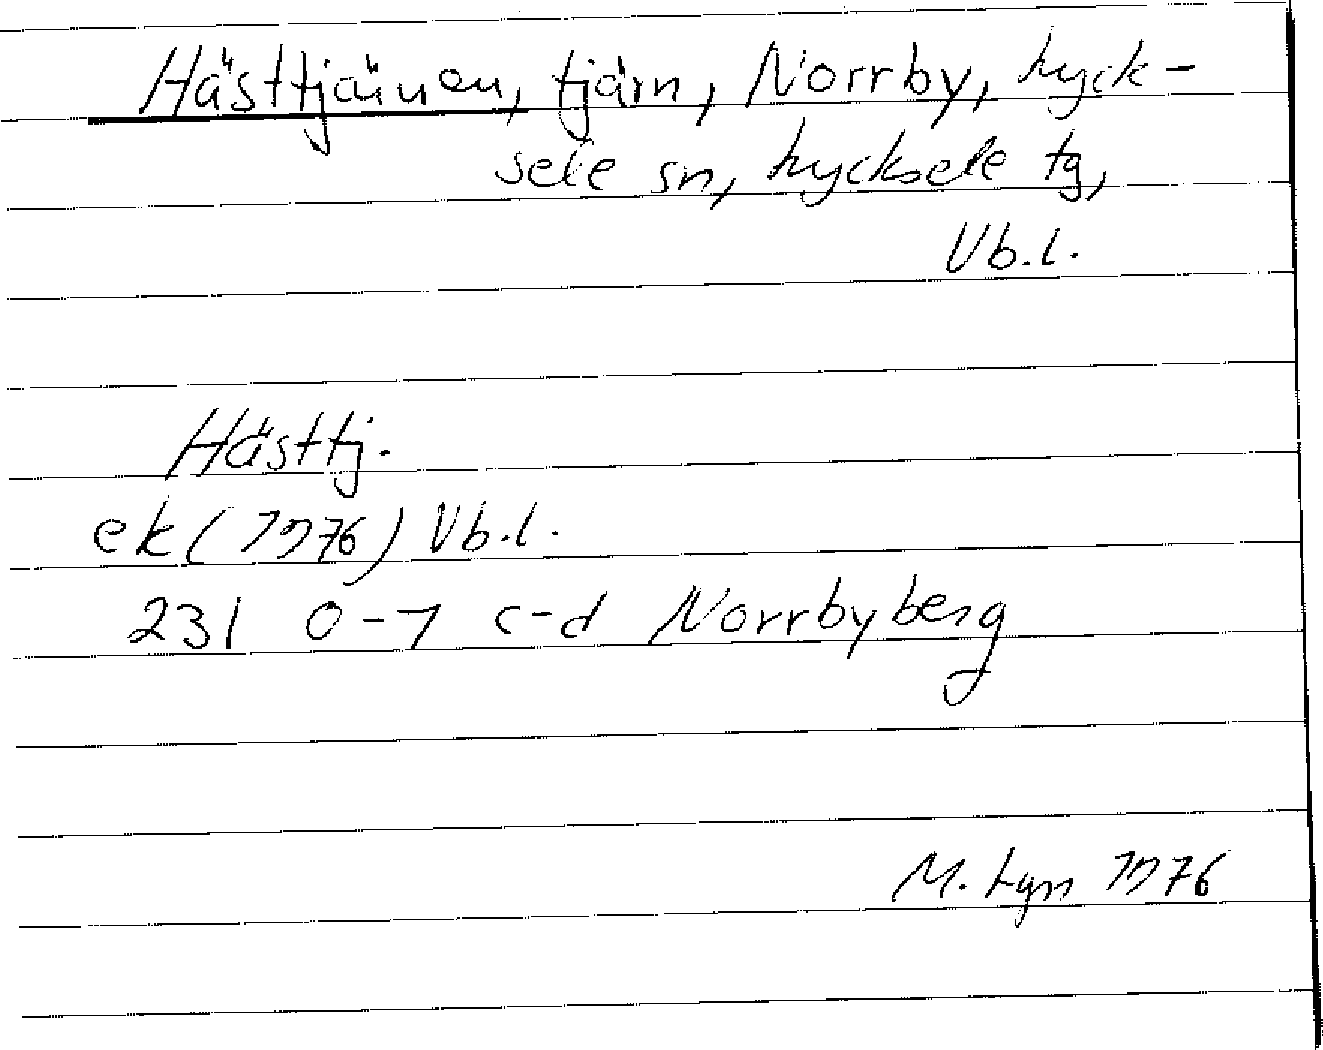 Hästtjärnen, tjärn, Norrby, Lyck-
sele sn, Lycksele tg,
Vb.l.
Hästtj.
ek (1976) Vb.l.
23I 0-1 c-d Norrbyberg
M. Lyn 1976